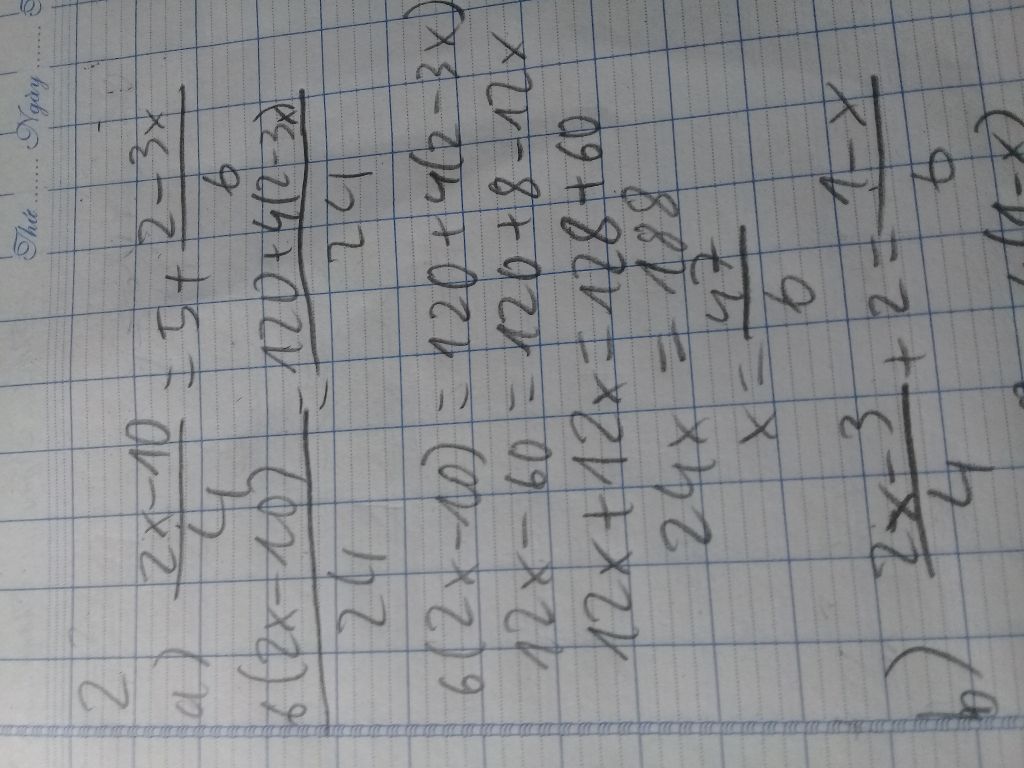 Thứ ........ Ngày ........
2
a) (2x-10)/4 = 5 + (2-3x)/6
6(2x-10)/24 = 120+4(2-3x)/24
6(2x-10) = 120+4(2-3x)
12x-60 = 120+8-12x
12x+12x = 128+60
24x = 188
x = 47/6
b) (2x-3)/4 + 2 = (1-x)/6
(1-x)